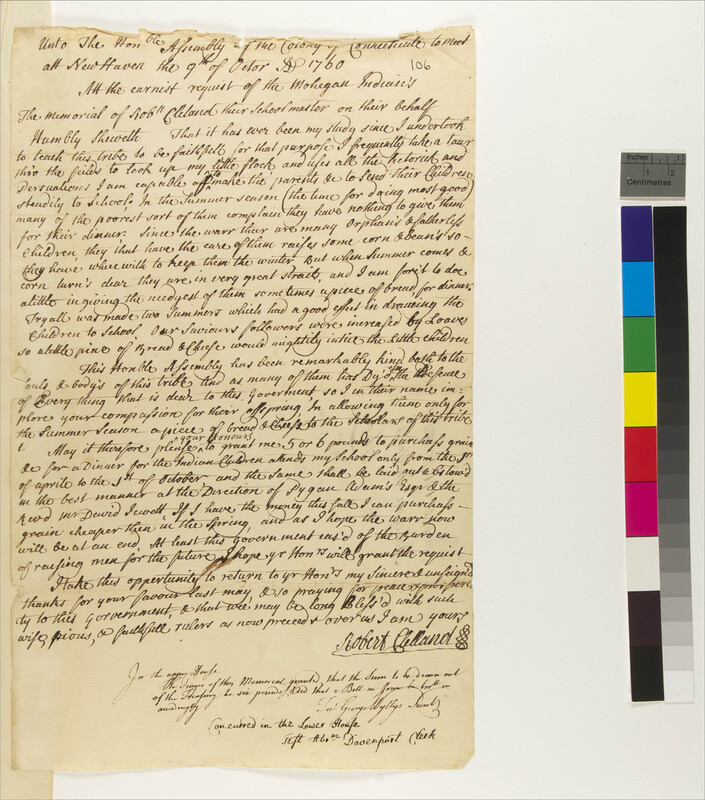 Unto The Honble Assembly of the Colony of Connecticutt to meet
att New Haven the 9th of Octor AD 1760
106
Att the earnist request of the Mohegan Indian's
The memorial of Robt Cleland their School master on their behalf
Humbly Sheweth That it has ever been my study since I undertook
to teach this tribe to be faithfull for that purpose I frequently take a tour
thro the feilds to look up my little flock and uses all the Retorick and
Perswations I am capable off to make the parents &c to send their Children
steadily to School: In the summer season (the time for doing most good)
many of the poorest sort of them complain they have nothing to give them
for their dinner. Since the warr ther are many Orphan's & fatherless
Children, they that have the care of them raises some corn & Bean's so
they have wherewith to keep them the winter But when Summer comes &
corn turn's dear they are in very great straits, and I am forc't to doe
a little in giving the needyest of them sometimes a piece of bread for dinner.
Tryall was made two Summers which had a good effect in drawing the
Children to School. Our Saviours followers were increased by Loaves
so a little piece of Bread & Cheese would mightily intice the Little children
This Honble Assembly has been remarkably kind both to the
souls & body's of this tribe And as many of them has Dy'd in the Defence
of Every thing that is dear to this Goverment so I in their name im-
plore your compassion for their offspring In allowing them only for
the Summer season a piece of bread & cheese to the Scholars of this tribe
May it therefore please your Honours to grant me 5 or 6 pounds to purchase grain
&c for a Dinner for the Indian Children attends my School only from the 1st
of aprile to the 1st of October and the same shall be laid out & bestow'd
in the best manner at the Direction of Pygan Adam's Esqr & the
Revd mr David Jewett If I have the money this fall I can purchass
grain cheaper then in the Spring, and as I hope the warr now
will be at an end At least this Government eas'd of the Burden
of raising men for the future I hope yr Honrs will grant the request
I take this opportunity to return to yr Honrs my Sincere & unfeign'd
thanks for your favour last may, & so praying for peace & prosperi
ty to this Gorvernment, & that we may be long Bless'd with such
wise, pious, & faithfull rulers as now preceeds over us I am yours
Robert Clelland
In the upper House
The Prayer of this Memorial granted, that the Sum to be drawn out
of the Treasury be six pounds, And that a Bill in form be brott in
accordingly
Test George Wyllys Secrety
Concurred in the Lower House
Test Abrm Davenport Clerk
Inches
1
2
Centimetres